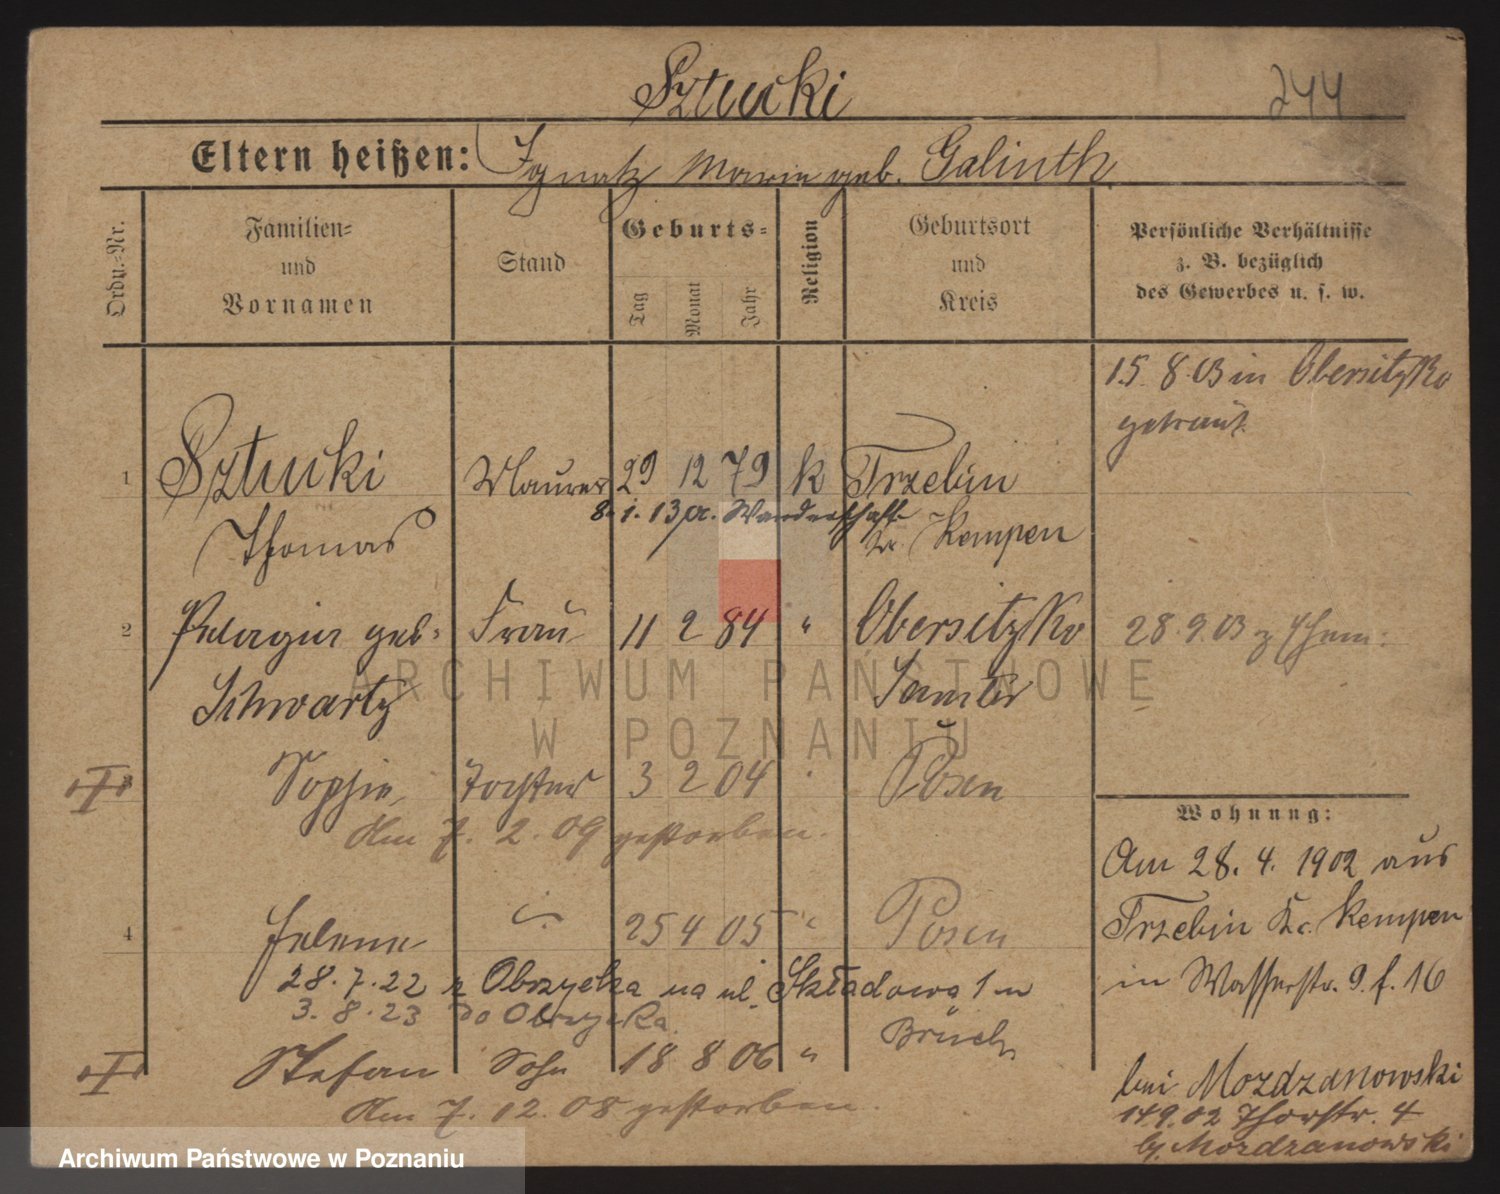 Sztucki
244
Eltern heißen: Ignatz Marie geb. Galinth
Ordn.-Nr.
Familien-
und
Vornamen
Stand
Geburts-
Tag
Monat
Jahr
Religion
Geburtsort
und
Kreis
Persönliche Verhältnisse
z. B. bezüglich
des Gewerbes u. s. w.
15. 8. 03 in Obersitzko
getraut.
1 Sztucki Maurer 29 12 79 k Trzebin
8. 1. 13 Wanderschaft
Thomas Kr. Kempen
2 Pelagia geb. Frau 11 2 84 " Obersitzko 28. 9. 03 z.
Schwartz Samter
3 Sophie Tochter 3 2 04 " Posen
Am 7. 2. 09 gestorben.
Wohnung:
Am 28. 4. 1902 aus
Trzebin Kr. Kempen
in Wasserstr. 9. f. 16
bei Mozdzanowski
14 9. 02 Thorstr. 4
bj. Mozdzanowski
4 Helene " 25 4 05 " Posen
28. 7. 22 z Obrzycka na ul. Składowa 1 m
3. 8. 23 do Obrzycka.
Stefan Sohn 18 8 06 "
Am 7. 12. 08 gestorben.
ARCHIWUM PAŃSTWOWE
W POZNANIU
Archiwum Państwowe w Poznaniu